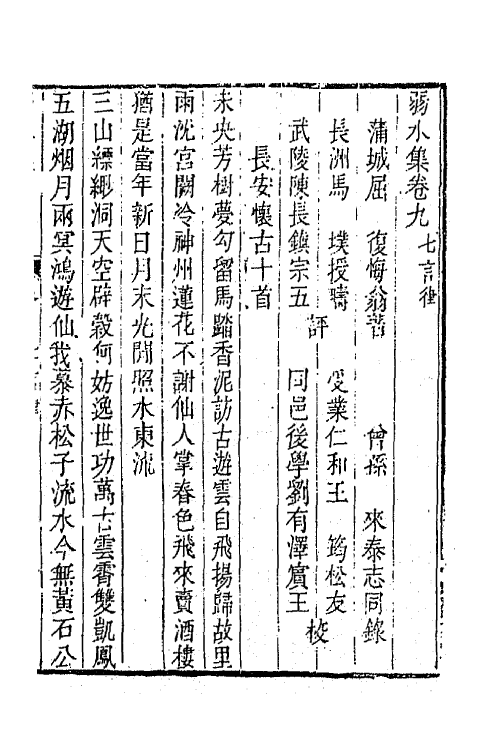 弱水集卷九 七言律
蒲城屈 復悔翁著 曾孫 來泰志同錄
長洲馬 墣授疇 受業仁和王 筠松友
評 校
武陵陳長鎮宗五 同邑後學劉有澤賓王
長安懷古十首
未央芳樹夢勾留馬踏香泥訪古遊雲自飛揚歸故里
雨沈宮闕冷神州蓮花不謝仙人掌春色飛來賣酒樓
猶是當年新日月末光閒照水東流
三山縹緲洞天空辟穀何妨逸世功萬古雲霄雙凱鳳
五湖烟月兩冥鴻遊仙我慕赤松子流水今無黃石公